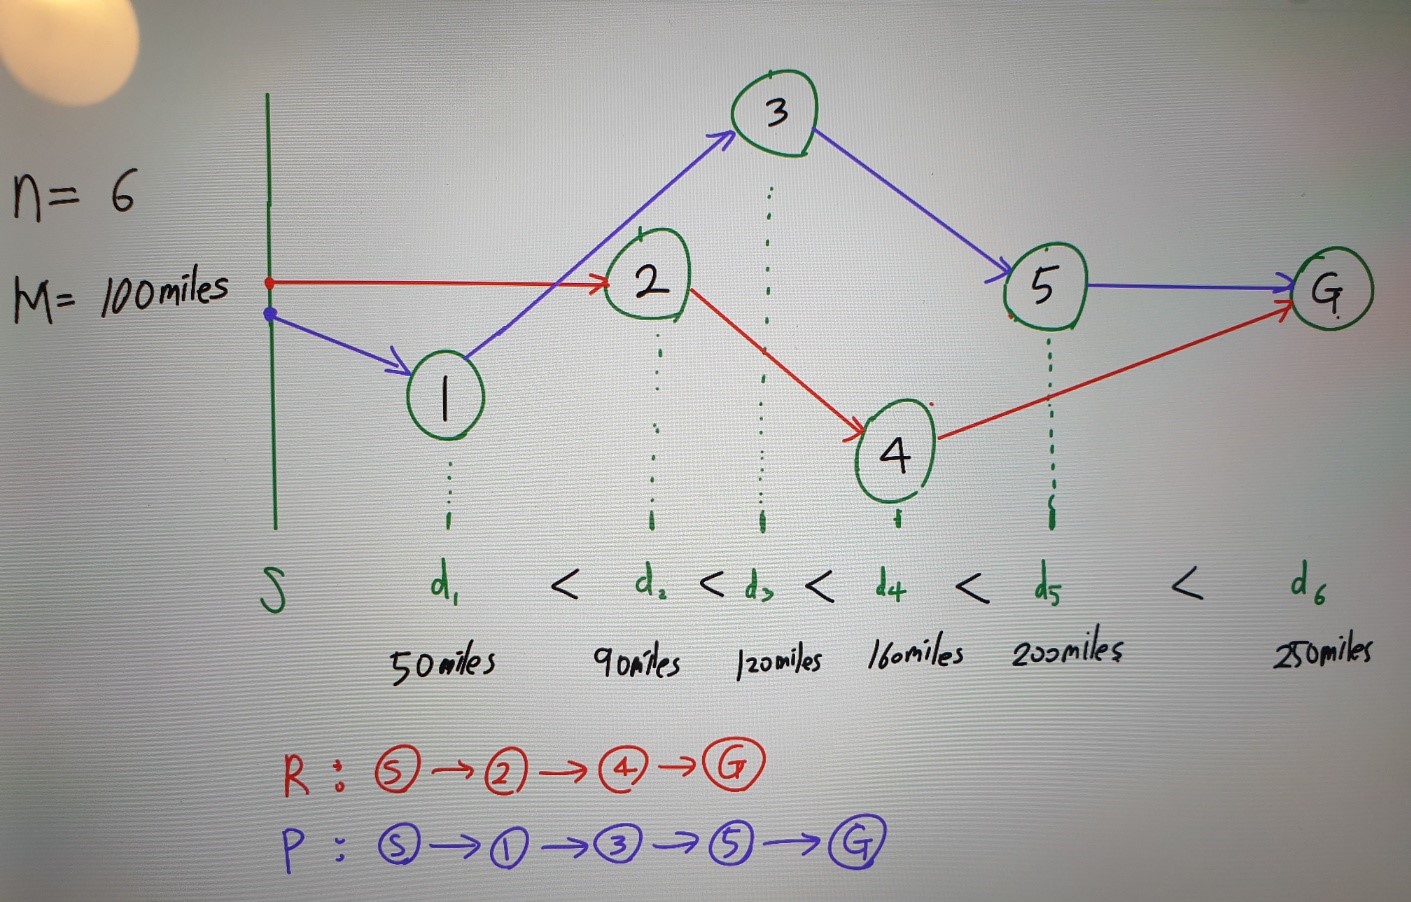 3
n= 6
2
5
G
M= 100miles
1
4
S d₁ < d₂ < d₃ < d₄ < d₅ < d₆
50miles 90miles 120miles 160miles 200miles 250miles
R : S → 2 → 4 → G
P : S → 1 → 3 → 5 → G